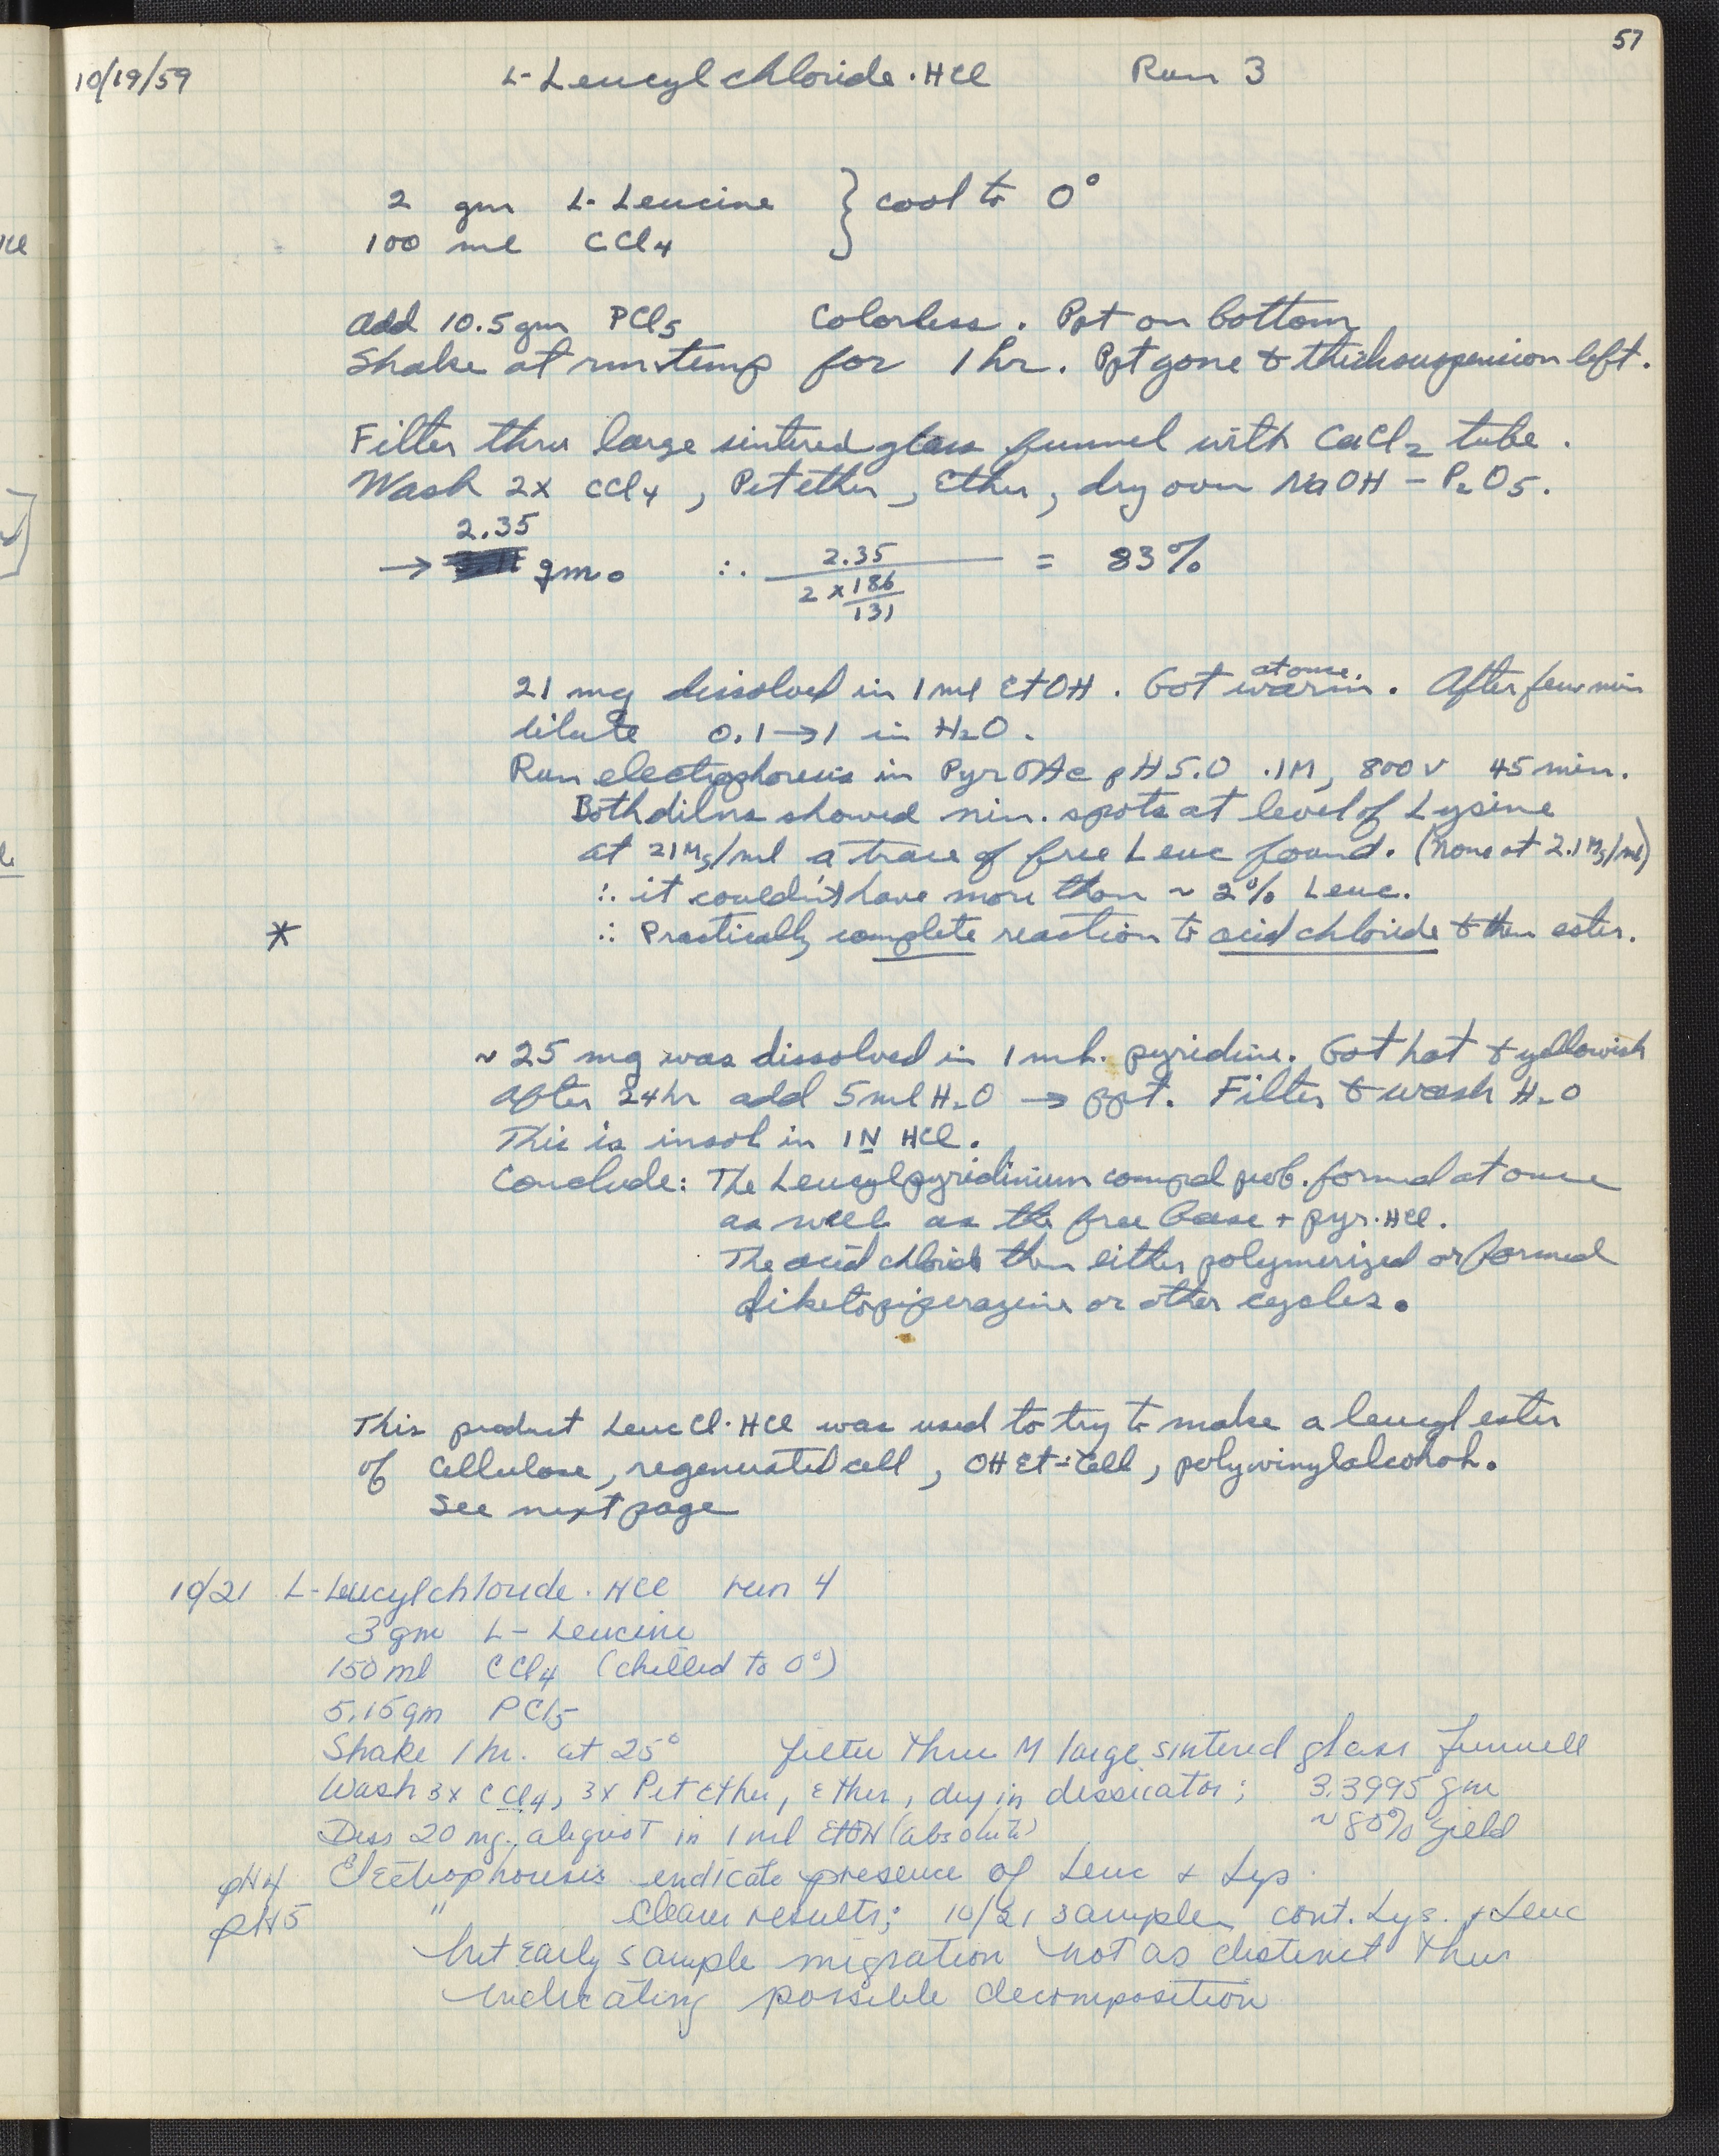 57
10/19/59 L-Leucyl chloride·HCl Run 3
2 gm L-Leucine } cool to 0°
100 ml CCl4
Add 10.5 gm PCl5 Colorless. Ppt on bottom
Shake at rm temp for 1 hr. Ppt gone & thick suspension left.
Filter thru large sintered glass funnel with CaCl2 tube.
Wash 2x CCl4, Pet ether, Ether, dry over NaOH - P2O5.
2.35
→ gm. ∴ 2.35 / 2 x 186/131 = 83%
21 mg dissolved in 1 ml EtOH. Got warm at once. After few min
dilute 0.1→1 in H2O.
Run electrophoresis in PyrOAc pH 5.0 .1M, 800 v 45 min.
Both dilns showed nin. spots at level of Lysine
at 21 Mg/ml a trace of free Leuc found. (none at 2.1 Mg/ml)
∴ it couldn't have more than ~ 2% Leuc.
* ∴ Practically complete reaction to acid chloride & then ester.
~ 25 mg was dissolved in 1 ml. pyridine. Got hot & yellowish
After 24 hr add 5 ml H2O → ppt. Filter & wash H2O
This is insol in 1N HCl.
Conclude: The Leucylpyridinium compd prob. formed at once
as well as the free base + pyr·HCl.
The acid chloride then either polymerized or formed
diketopiperazine or other cycles.
This product Leuc Cl·HCl was used to try to make a leucyl ester
of cellulose, regenerated cell, OH Et-Cell, polyvinylalcohol.
See next page
10/21 L-Leucylchloride·HCl run 4
3 gm L-Leucine
150 ml CCl4 (chilled to 0°)
5.15 gm PCl5
Shake 1 hr. at 25° filter thru M large sintered glass funnell
Wash 3x CCl4, 3x Pet Ether, Ether, dry in dessicator; 3.3995 gm
Diss 20 mg. aliquot in 1 ml EtOH (absolute) ~80% yield
pH4 Electrophoresis indicate presence of Leuc & Lys.
pH5 " Clear results; 10/21 sample cont. Lys. & Leuc
but early sample migration not as distinct thus
indicating possible decomposition